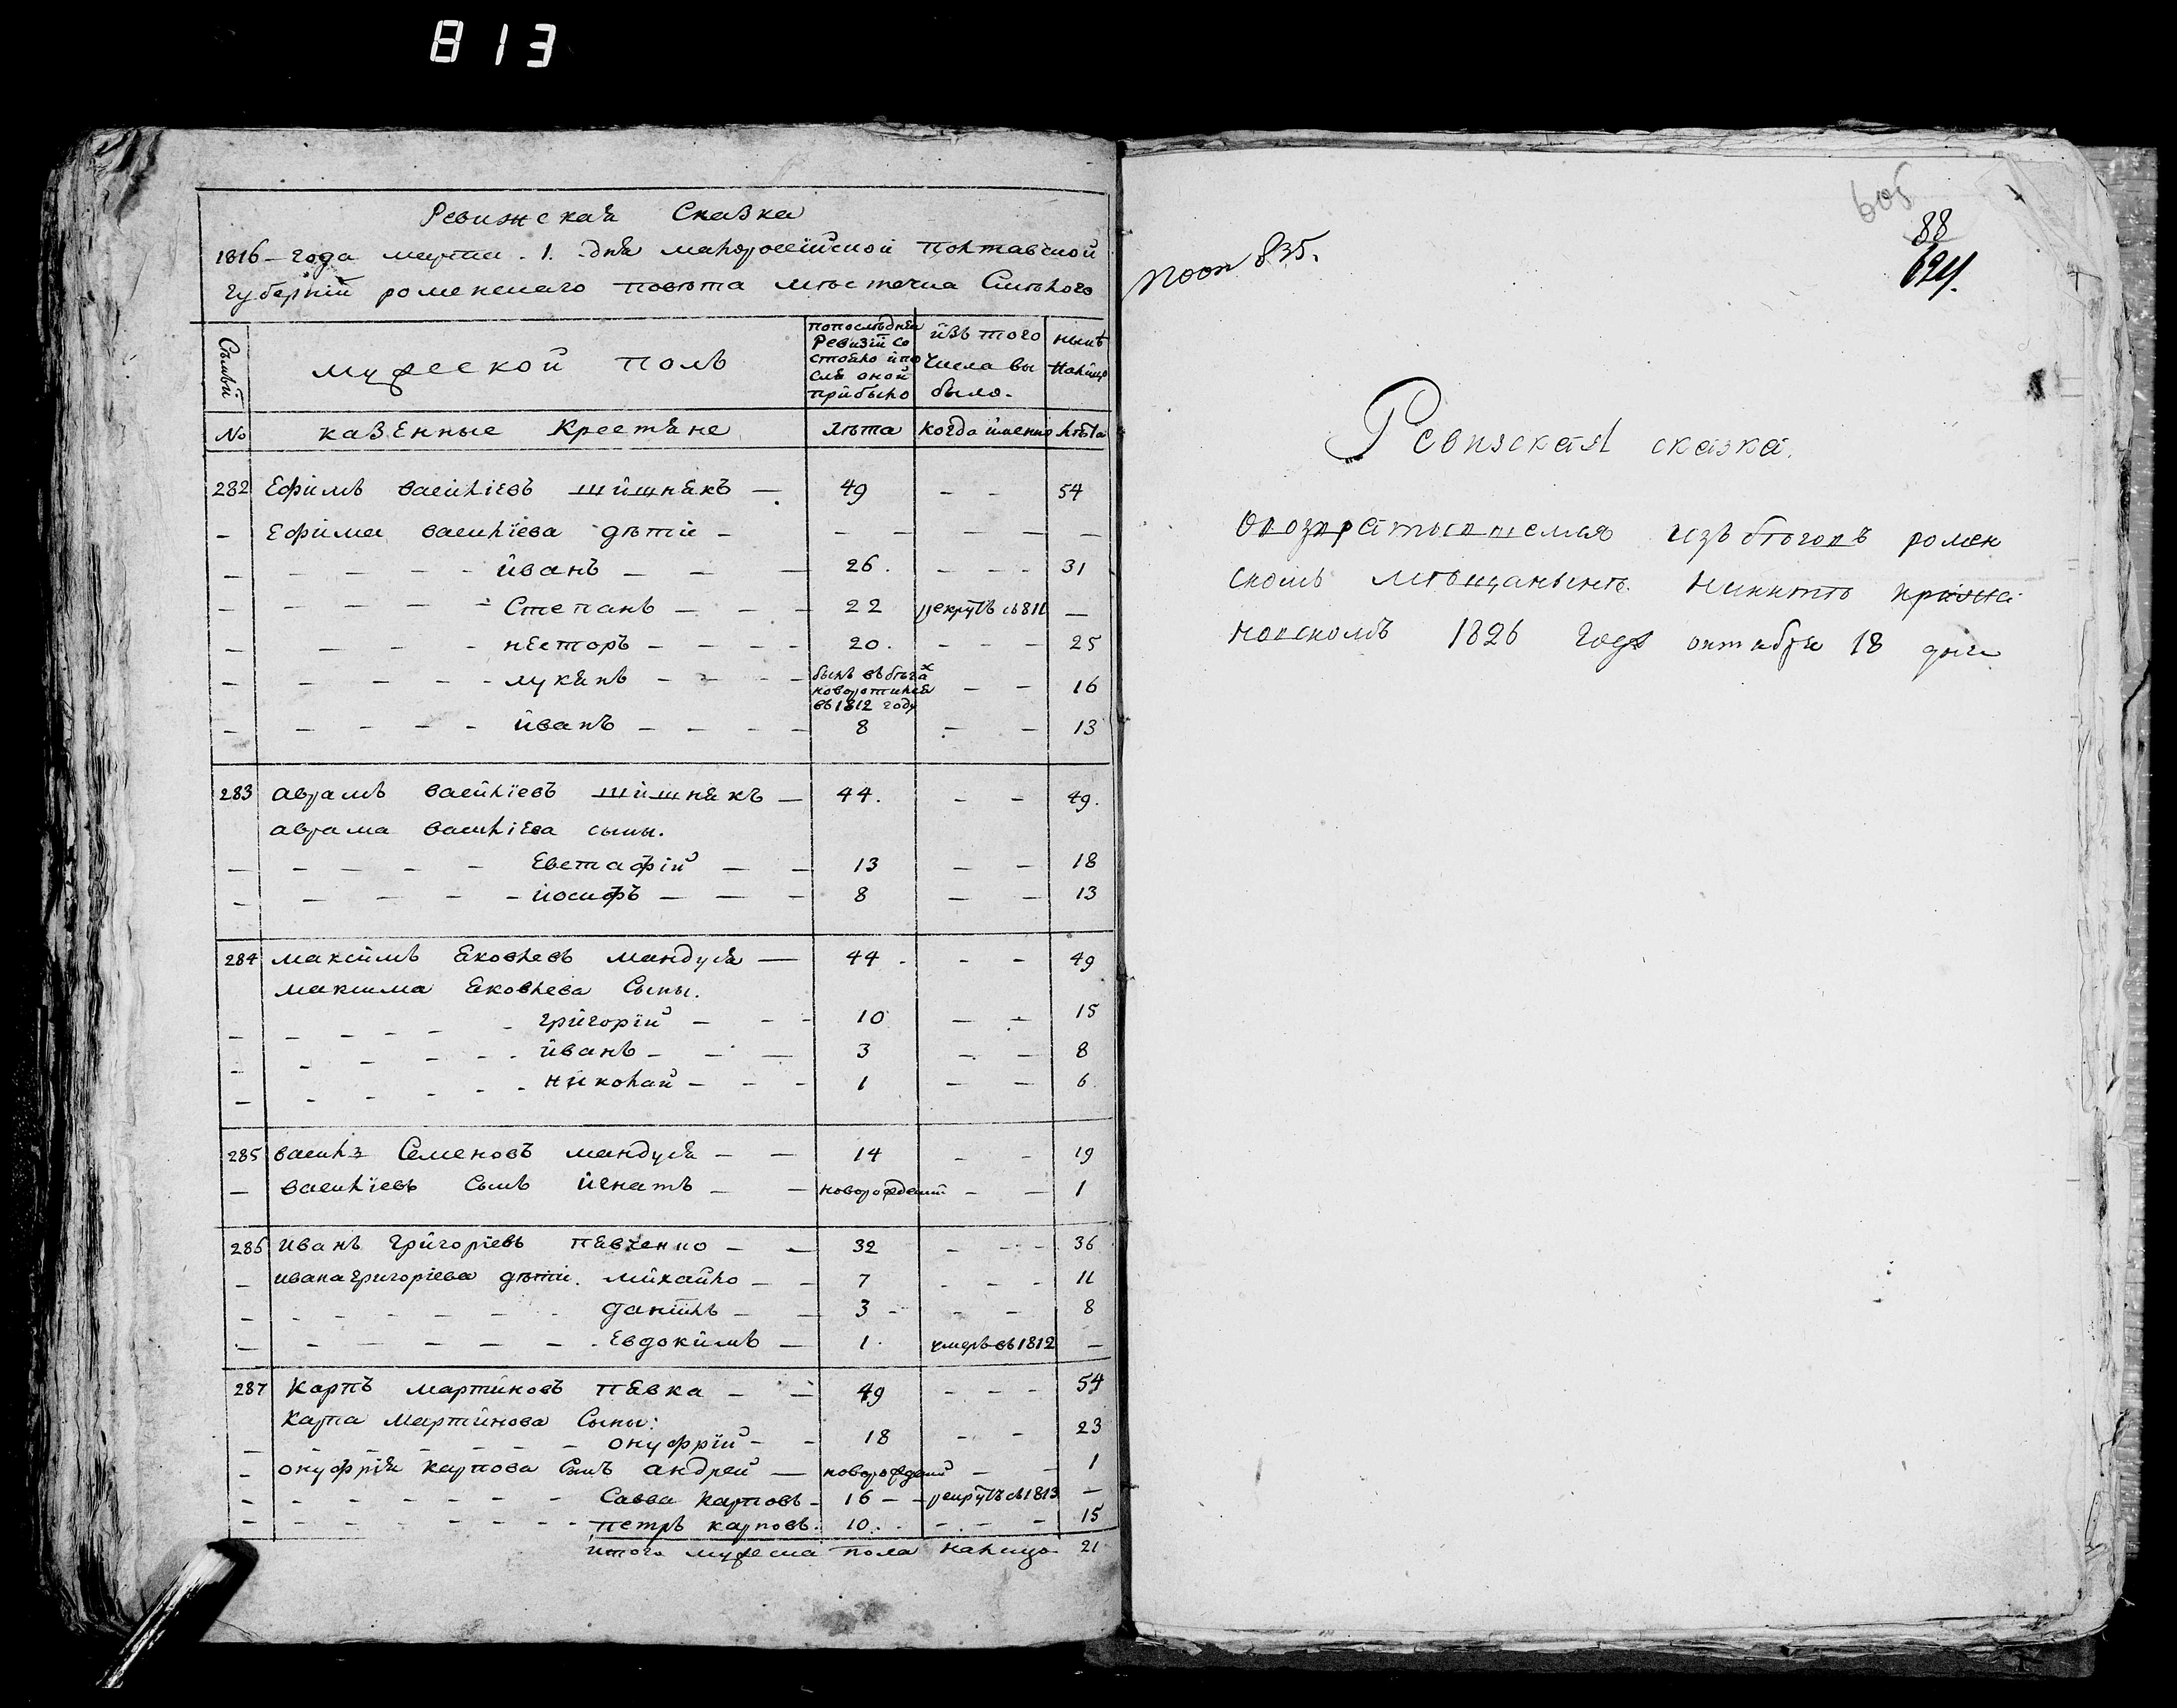 813
Ревижская Сказка
1816 - года марта . 1. дня малоросїйской Полтавской
губернїй роменскаго повѣта мѣстечка Смѣлого
Сѣмьй
мужеской полъ
попослѣдней Ревизїй состояло и после оной прибыло
изъ того числа выбыло.
нынѣ налицо
№ казенные Крестяне лѣта когда именно лѣта
282 Ефимъ васильїевъ шишнякъ — 49 - - 54
- Ефима васильїева дѣти - - - - - -
- - - - - - иванъ - - - 26. - - - 31
- - - - - - Степанъ - - - 22 рекрутъ въ811 -
- - - - несторъ - - - - 20. - - - 25
- - - - - - лукянъ - - - былъ вбѣгах новоротился въ1812 году - - 16
- - - - - иванъ - - - - 8 - - 13
283 аврамъ васильїевъ шишнякъ — 44. - - 49.
аврама васильїева сыны.
- - - - - Евстафїй - - 13 - - 18
- - - - - - иосифъ - - - 8 - - 13
284 максимъ Яковлевъ мандуся — 44 - - - 49
максима Яковлева Сыны.
- - - - - - григорїй - - - 10 - - 15
- - - - - - иванъ - - - 3 - - 8
- - - - - - николай - - - 1 - - 6
285 василь Семеновъ мандуся - - 14 - - 19
- васильїевъ Сынъ игнатъ - - новорожденый - - 1
286 иванъ григорїевъ пявченко - - 32 - - - 36
- ивана григорїева дѣти. михайло - - 7 - - - 11
- - - - - - - данилъ - - 3 - - - 8
- - - - - - - Евдокимъ - 1. умеръ въ1812 -
287 Карпъ мартиновъ пявка - - 49 - - - 54
Карпа Мартинова Сыны:
- - - - - - онуфрїй - - 18 - - 23
- онуфрїя карпова Сынъ андрей — новорожденый - - 1
- - - - - - - Савва карповъ - 16 - - рекрутъ въ1813 -
- - - - - - - - петръ карповъ. 10. - - - - 15
итого мужеска пола налицо 21
605
88
624.
835.
Ревизская сказка.
о возвратившемся изъ бѣговъ ромен
скомъ мѣщанынѣ Никитѣ
1826 года октября 18 дня